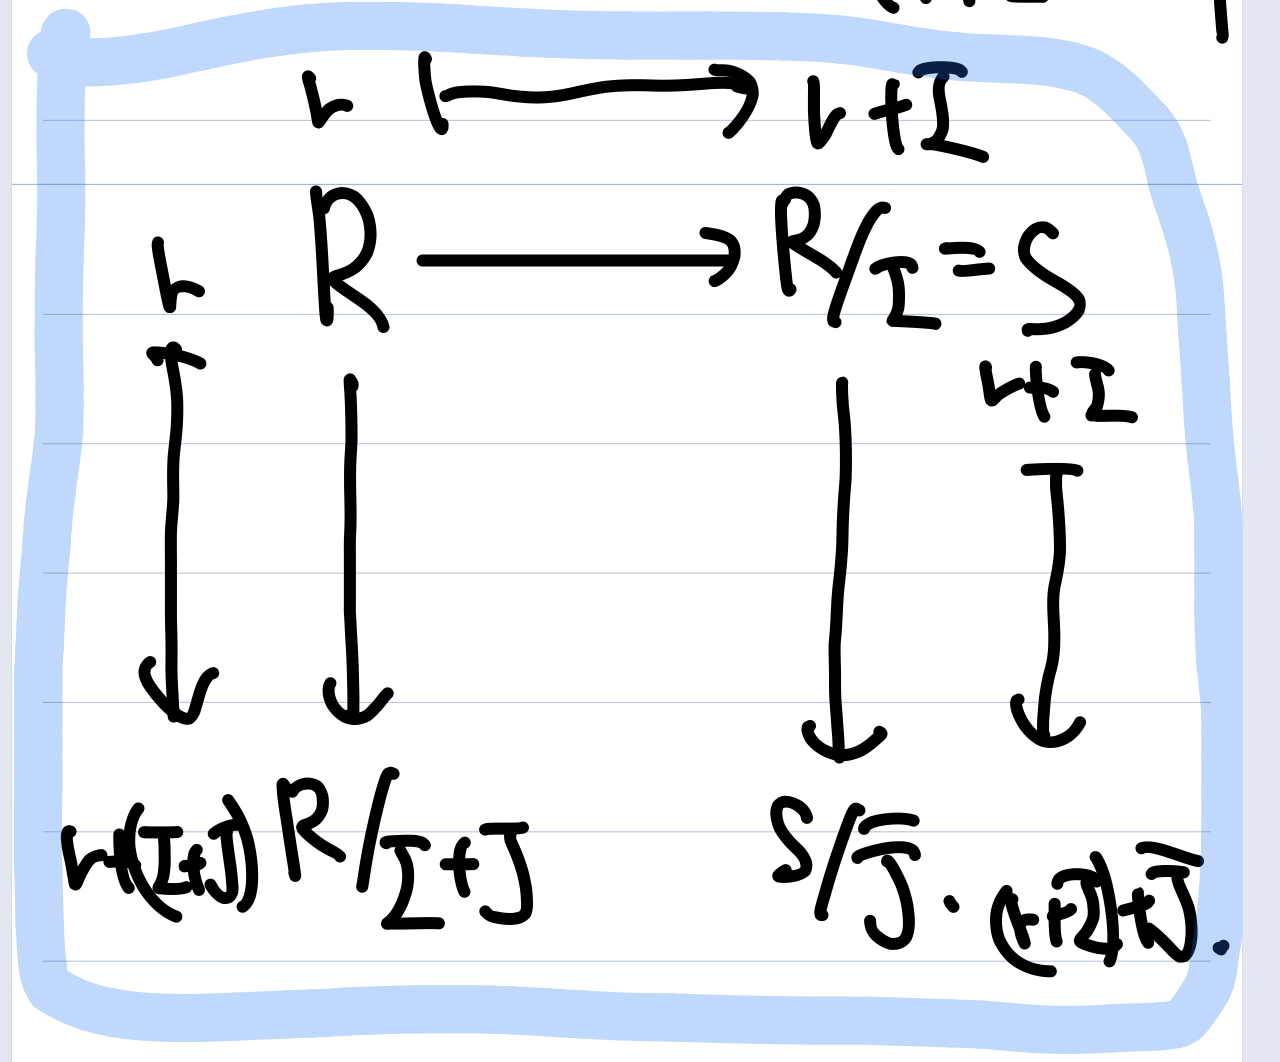 r ↦ r+I
r R ⟶ R/I = S
r+I
r+(I+J) R/I+J S/J̅ . (r+I)+J̅.